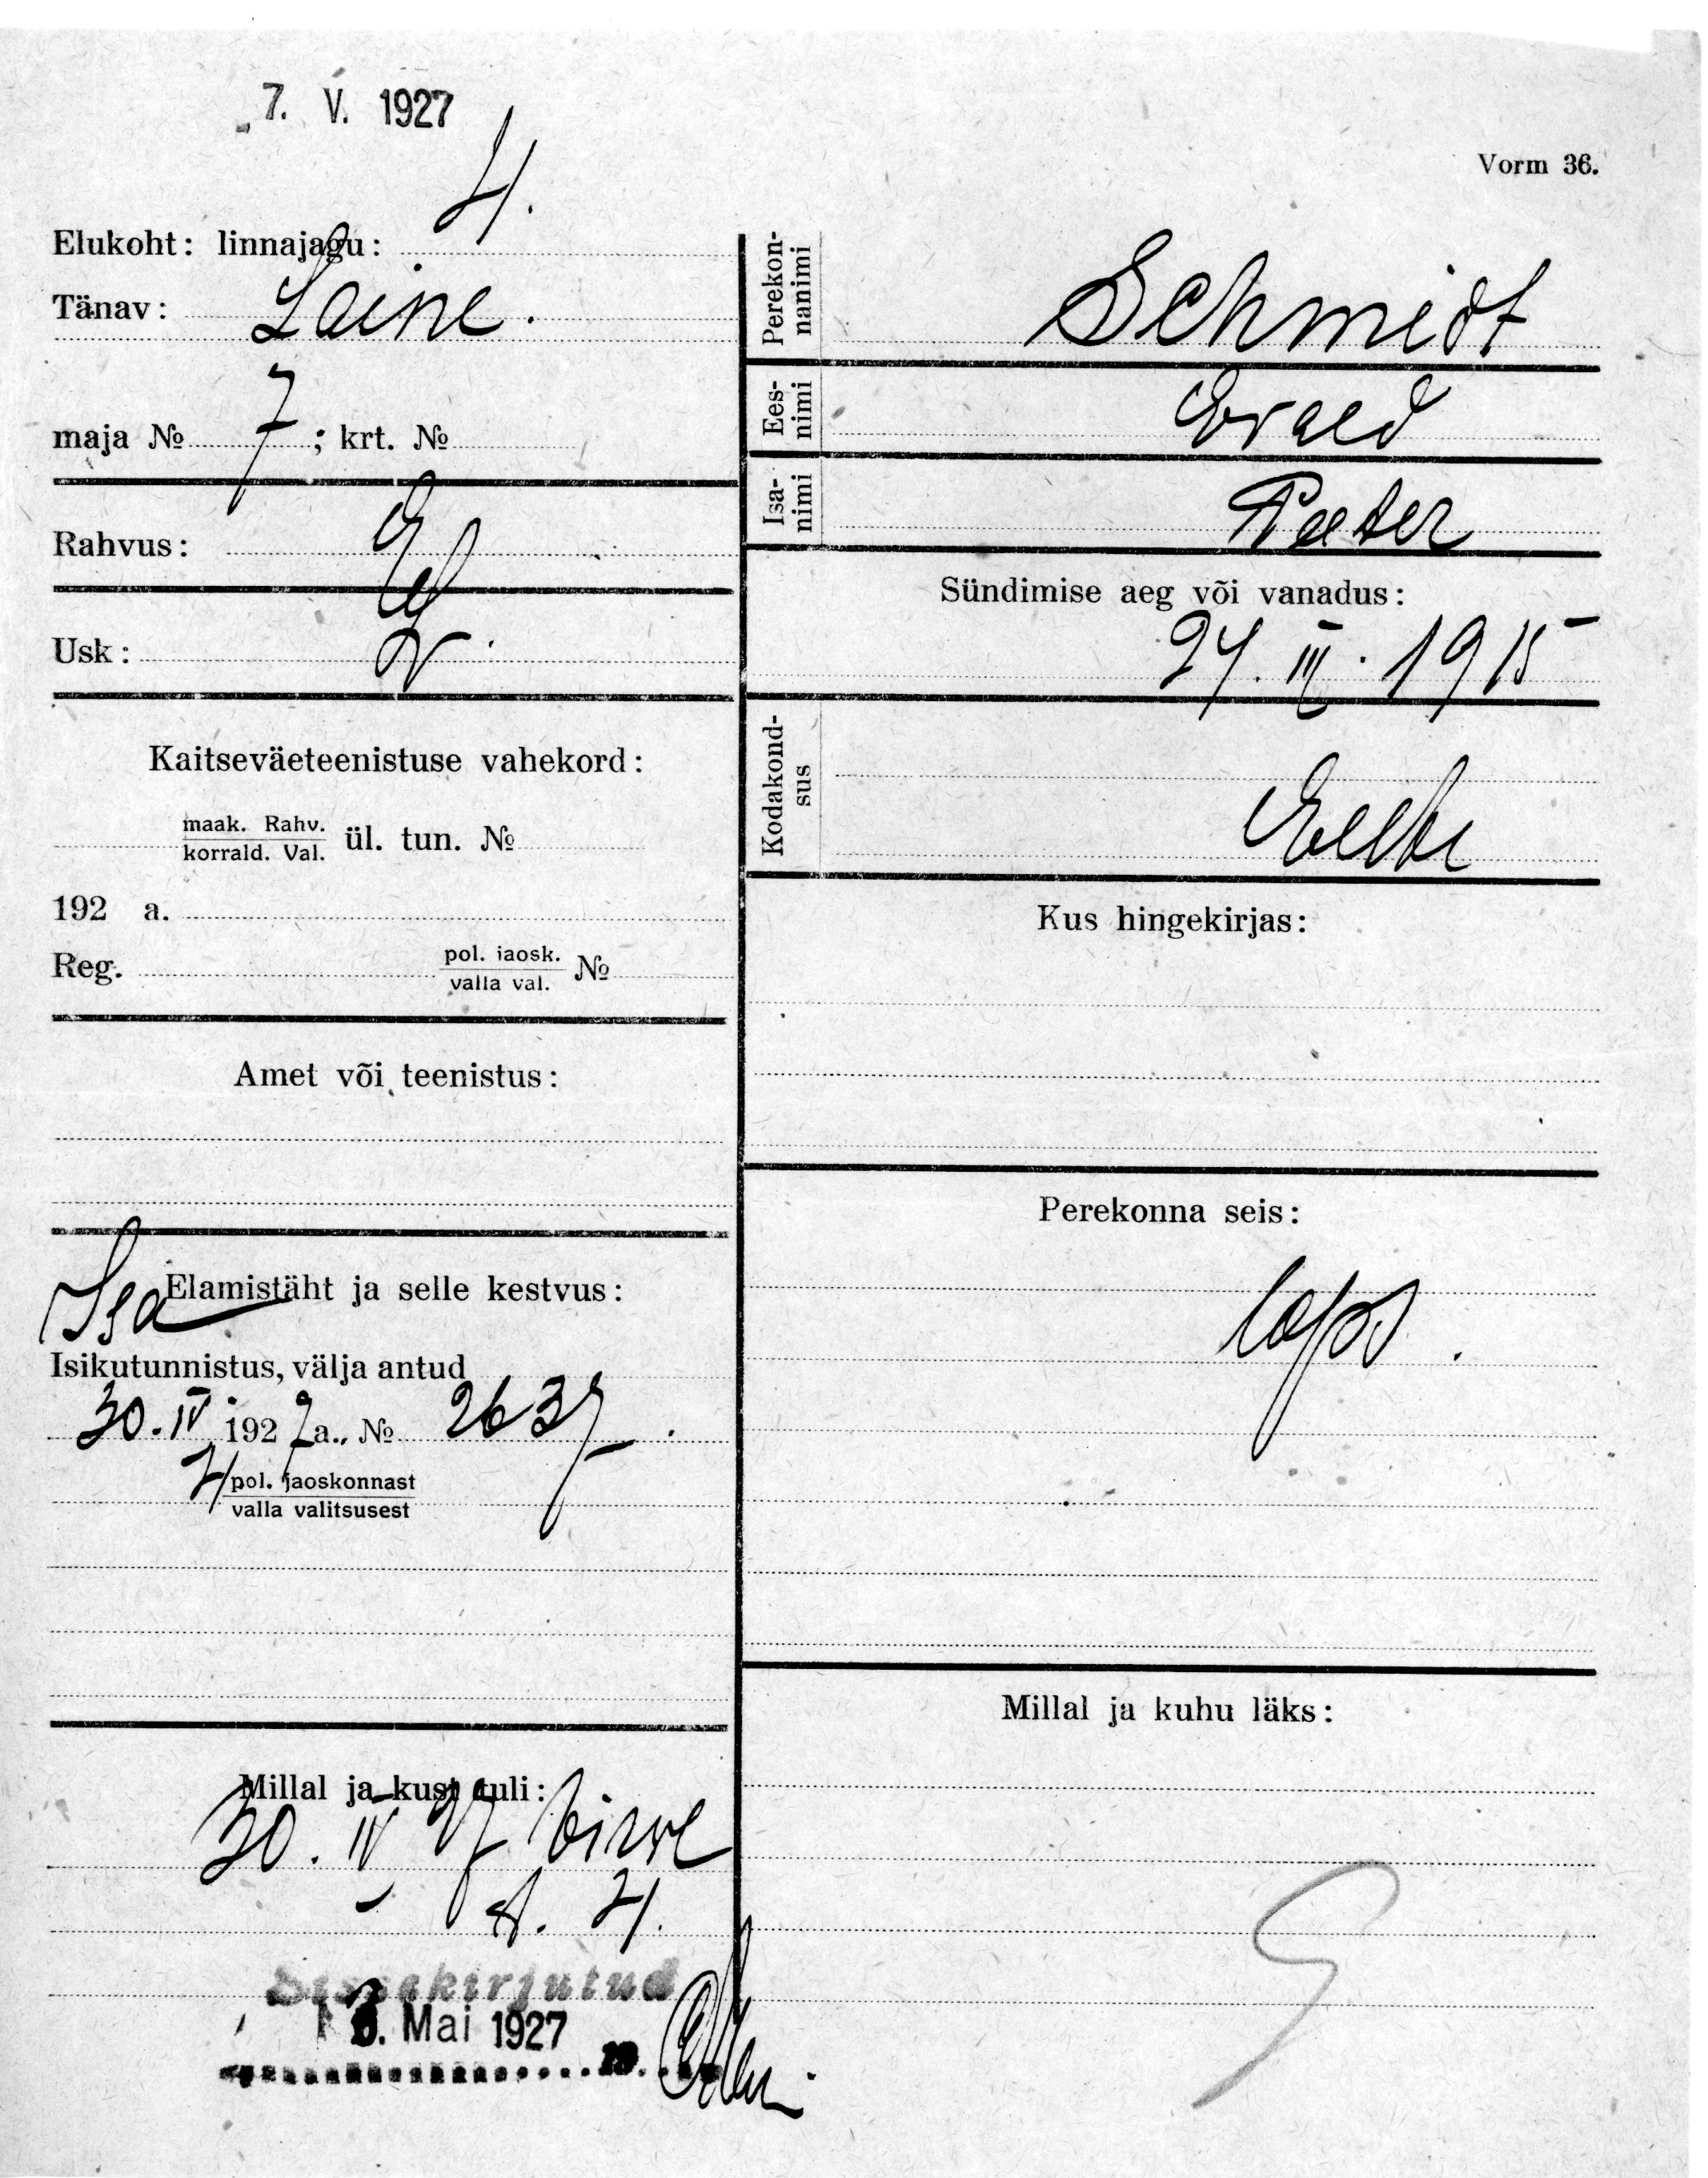 7. V. 1927
Vorm 36.
4.
Elukoht: linnajagu:
Tänav: Laine.
maja № 7; krt. №
Rahvus: E
Usk:
Kaitseväeteenistuse vahekord:
maak. Rahv.
korrald. Val. ül. tun. №
192 a.
Reg. pol. jaosk.
valla val. №
Amet või teenistus:
Isa
Elamistäht ja selle kestvus:
Isikutunnistus, välja antud
30. IV 1927 a., № 2637.
4 pol. jaoskonnast
valla valitsusest
Millal ja kust tuli:
30. IV 27 Virve
t. 4.
Sissekirjutud
Mai 1927
19
Perekon-
nanimi
Schmidt
Ees-
nimi
Evald
Isa-
nimi
Peeter
Sündimise aeg või vanadus:
24. III. 1915
Kodakond-
sus
Eesti
Kus hingekirjas:
Perekonna seis:
laps.
Millal ja kuhu läks: